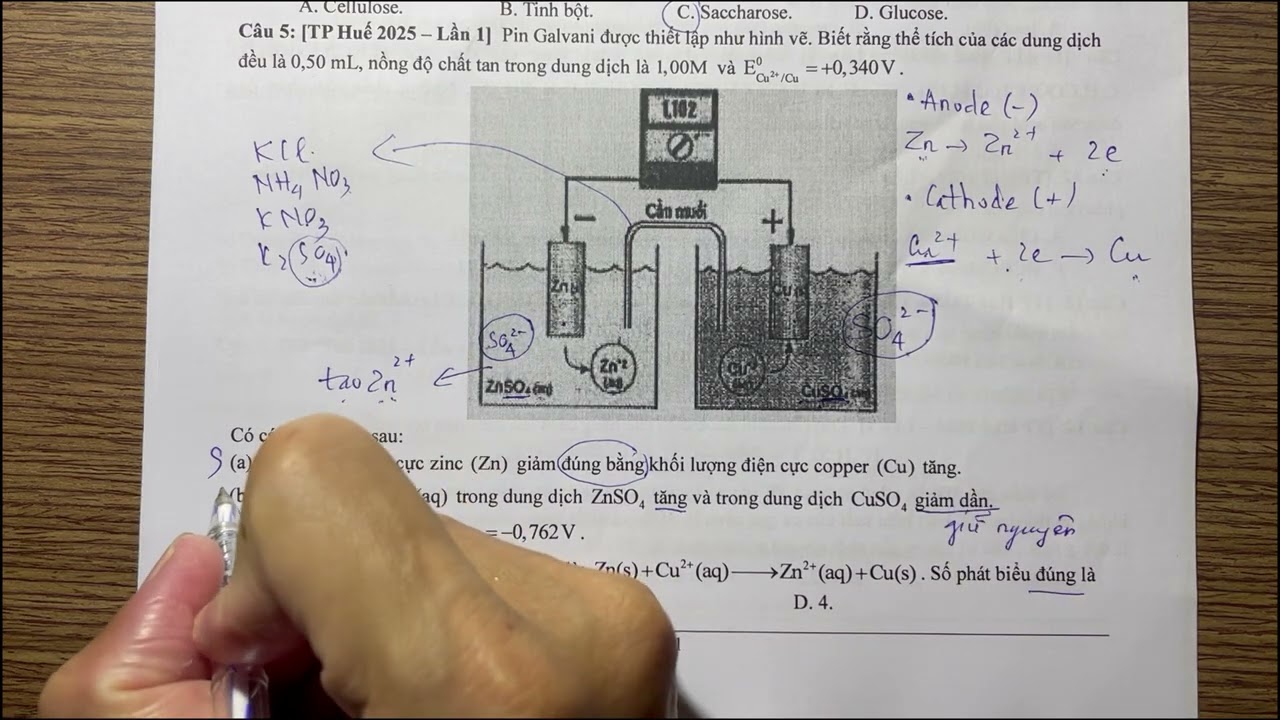 A. Cellulose. B. Tinh bột. C. Saccharose. D. Glucose.
Câu 5: [TP Huế 2025 – Lần 1] Pin Galvani được thiết lập như hình vẽ. Biết rằng thể tích của các dung dịch
đều là 0,50 mL, nồng độ chất tan trong dung dịch là 1,00M và E⁰Cu²⁺/Cu = +0,340 V.
1.102
Cầu muối
− +
Zn
Cu
Zn+2
(aq)
ZnSO₄ (aq)
CuSO₄
KCl
NH₄NO₃
KNO₃
K₂SO₄
SO₄²⁻
SO₄²⁻
tạo Zn²⁺
• Anode (-)
Zn → Zn²⁺ + 2e
• Cathode (+)
Cu²⁺ + 2e → Cu
Có sau:
S (a) cực zinc (Zn) giảm đúng bằng khối lượng điện cực copper (Cu) tăng.
(b (aq) trong dung dịch ZnSO₄ tăng và trong dung dịch CuSO₄ giảm dần.
giữ nguyên
= −0,762 V.
Zn(s) + Cu²⁺(aq) ⟶ Zn²⁺(aq) + Cu(s). Số phát biểu đúng là
D. 4.